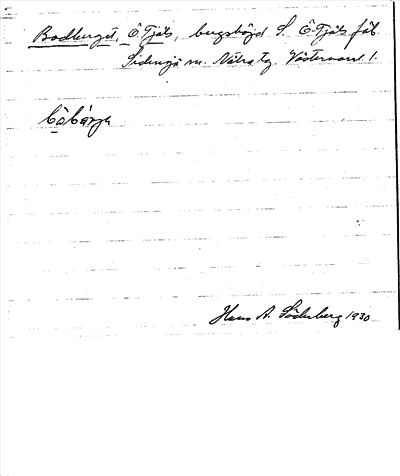 Bodberget, Ö. Tjäls, bergshöjd S. Ö. Tjäls fäb.
Sidensjö sn. Nätra tg. Västernorrl. l.
bôbárję
Hans A. Söderberg 1930